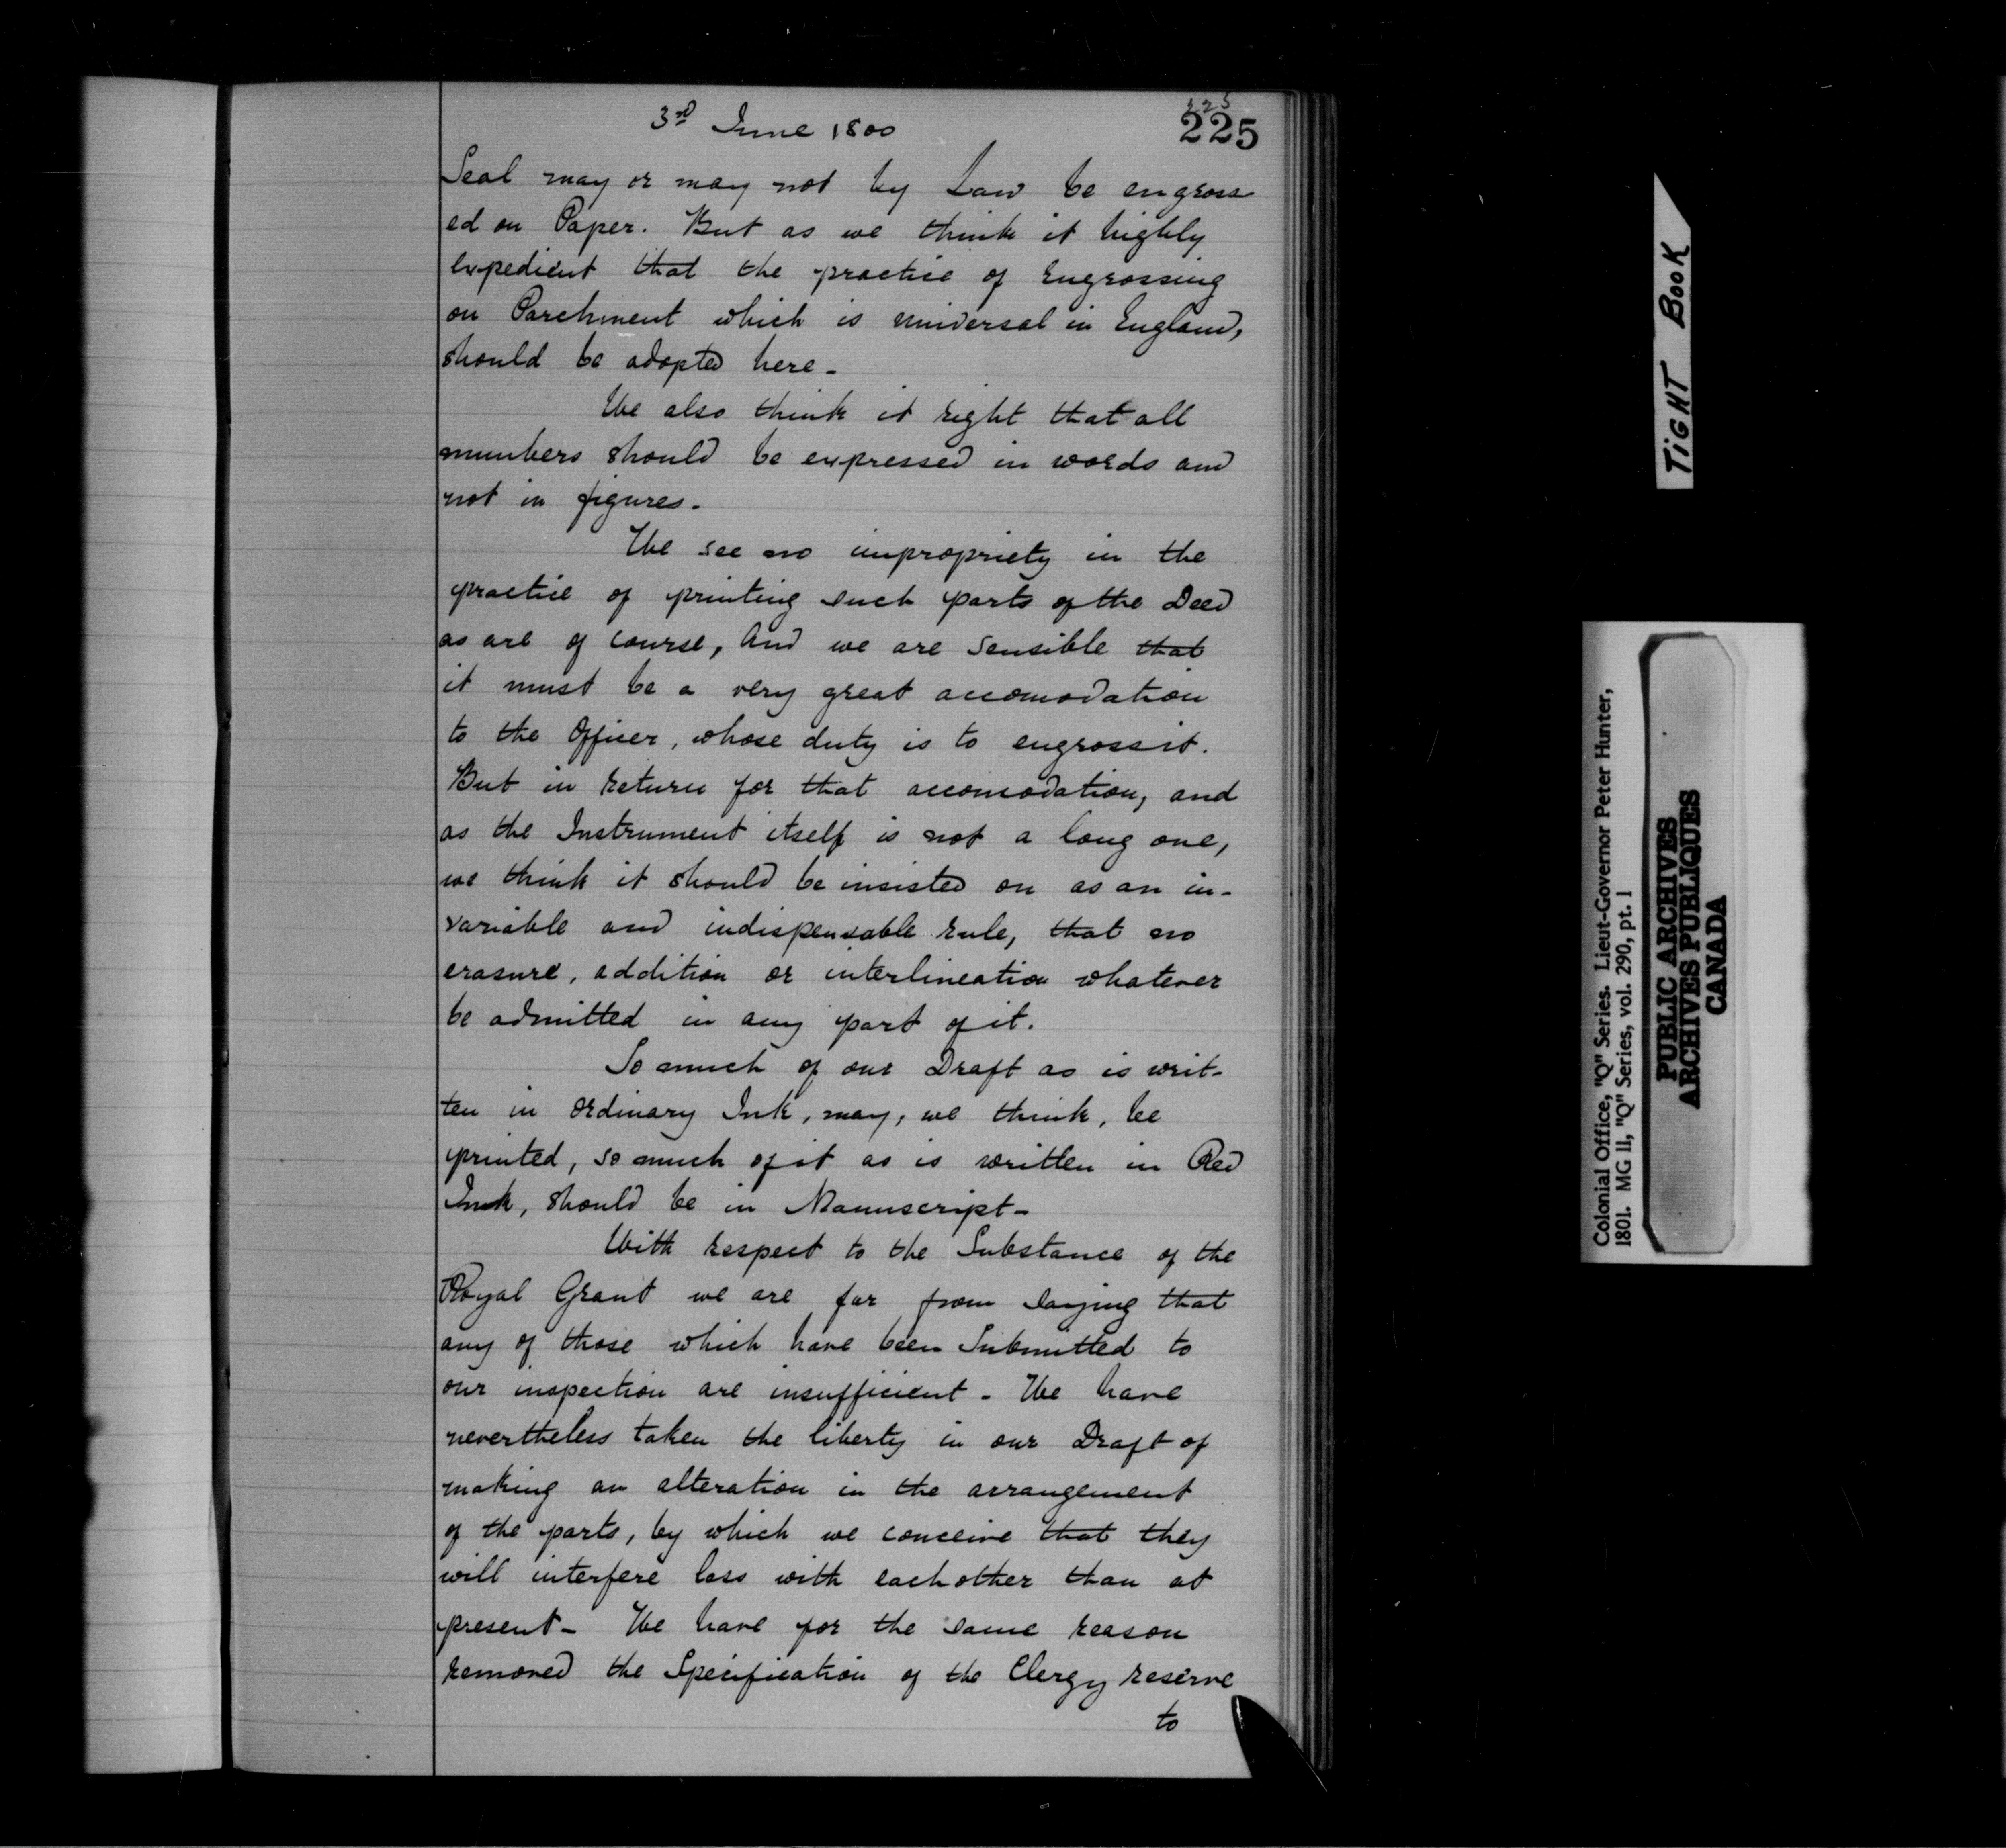 3rd June 1800
225
225
Seal may or may not by Law be engross
ed on Paper. But as we think it highly
expedient that the practice of Engrossing
on Parchment which is universal in England,
should be adopted here-
We also think it right that all
numbers should be expressed in words and
not in figures-
We see no impropriety in the
practice of printing such parts of the Deed
as are of course, And we are Sensible that
it must be a very great accomodation
to the Officer, whose duty is to engross it.
But in return for that accomodation, and
as the Instrument itself is not a long one,
we think it should be insisted on as an in-
variable and indispensable rule, that no
erasure, addition or interlineation whatever
be admitted in any part of it.
So much of our Draft as is writ-
ten in ordinary Ink, may, we think, be
printed, so much of it as is written in Red
Ink, should be in Manuscript-
With respect to the Substance of the
Royal Grant we are far from saying that
any of those which have been Submitted to
our inspection are insufficient- We have
nevertheless taken the liberty in our Draft of
making an alteration in the arrangement
of the parts, by which we conceive that they
will interfere less with each other than at
present- We have for the same reason
removed the Specification of the Clergy reserve
to
TIGHT BOOK
Colonial Office, "Q" Series. Lieut-Governor Peter Hunter,
1801. MG 11, "Q" Series, vol. 290, pt. 1
PUBLIC ARCHIVES
ARCHIVES PUBLIQUES
CANADA